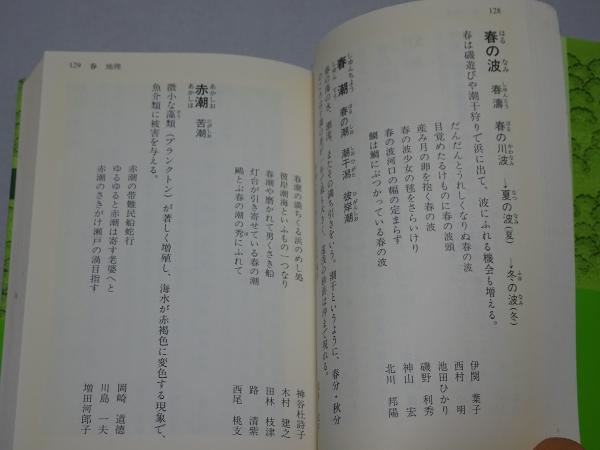 128
春の波 春濤 春の川波 →夏の波(夏) →冬の波(冬)
春は磯遊びや潮干狩りで浜に出て、波にふれる機会も増える。
だんだんとうれしくなりぬ春の波 伊関 葉子
目覚めたるけものに春の波頭 西村 明
産み月の卵を抱く春の波 池田ひかり
春の波少女の毬をさらいけり 磯野 利秀
春の波河口の幅の定まらず 神山 宏
鯛は鯛にぶつかっている春の波 北川 邦陽
春潮 春の潮 潮干潟 彼岸潮
129 春 地理
春潮の満ちくる浜のめし処 神谷杜詩子
彼岸潮海といふもの一つなり 木村 建之
春潮や磨かれて男くさき船 田林 枝津
灯台が引き寄せている春の潮 路 清紫
鷗とぶ春の潮の秀にふれて 西尾 桃支
赤潮 苦潮
微小な藻類(プランクトン)が著しく増殖し、海水が赤褐色に変色する現象で、
魚介類に被害を与える。
赤潮の帯難民船蛇行 岡崎 道徳
ゆるゆると赤潮は寄す老婆へと 川島 一夫
赤潮のさきがけ瀬戸の渦目指す 増田河郎子